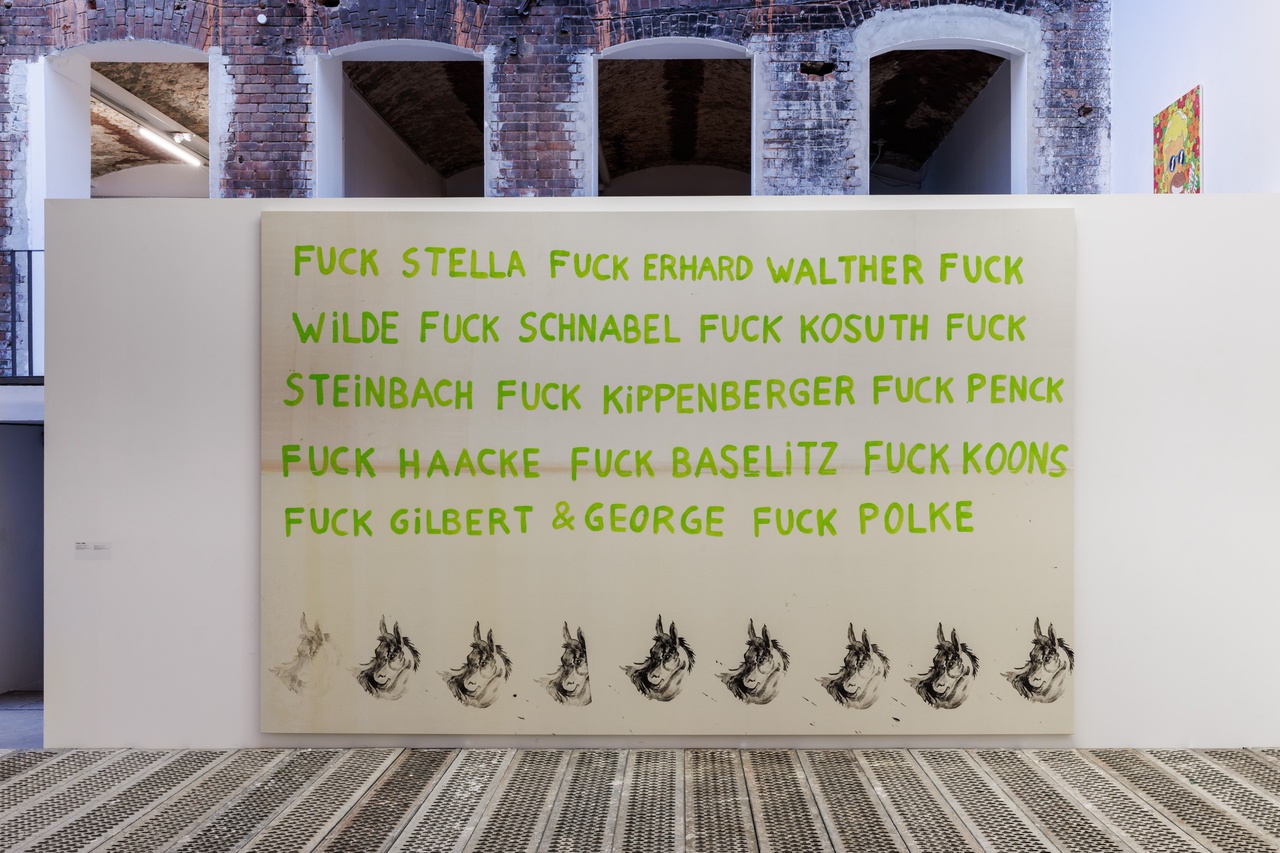 FUCK STELLA FUCK ERHARD WALTHER FUCK
WiLDE FUCK SCHNABEL FUCK KOSUTH FUCK
STEiNBACH FUCK KiPPENBERGER FUCK PENCK
FUCK HAACKE FUCK BASELiTZ FUCK KOONS
FUCK GiLBERT & GEORGE FUCK POLKE